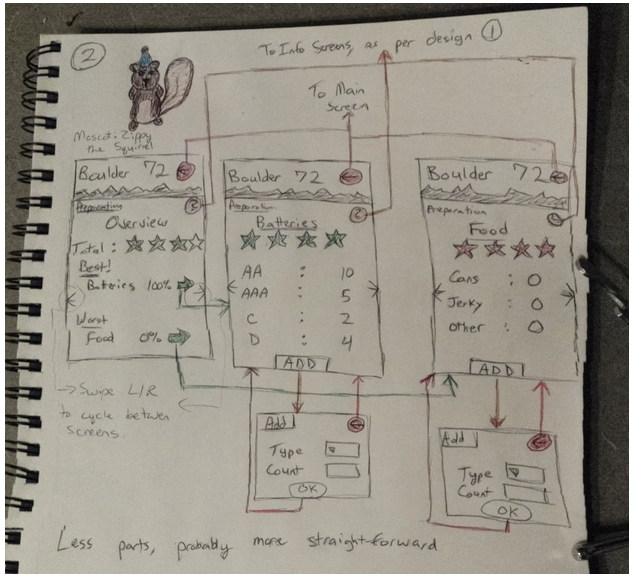 2
To Info Screens, as per design 1
To Main
Screen
Mascot: Zippy
the Squirrel
Boulder 72
Preparation
Overview
Total :
Best!
Batteries 100%
Worst
Food 0%
Boulder 72
Preparation
Batteries
AA : 10
AAA : 5
C : 2
D : 4
ADD
Boulder 72
Preparation
Food
Cans : 0
Jerky : 0
Other : 0
ADD
→ Swipe L/R
to cycle betwen
screens.
Add
Type
Count
OK
Add
Type
Count
OK
Less parts, probably more straight-forward